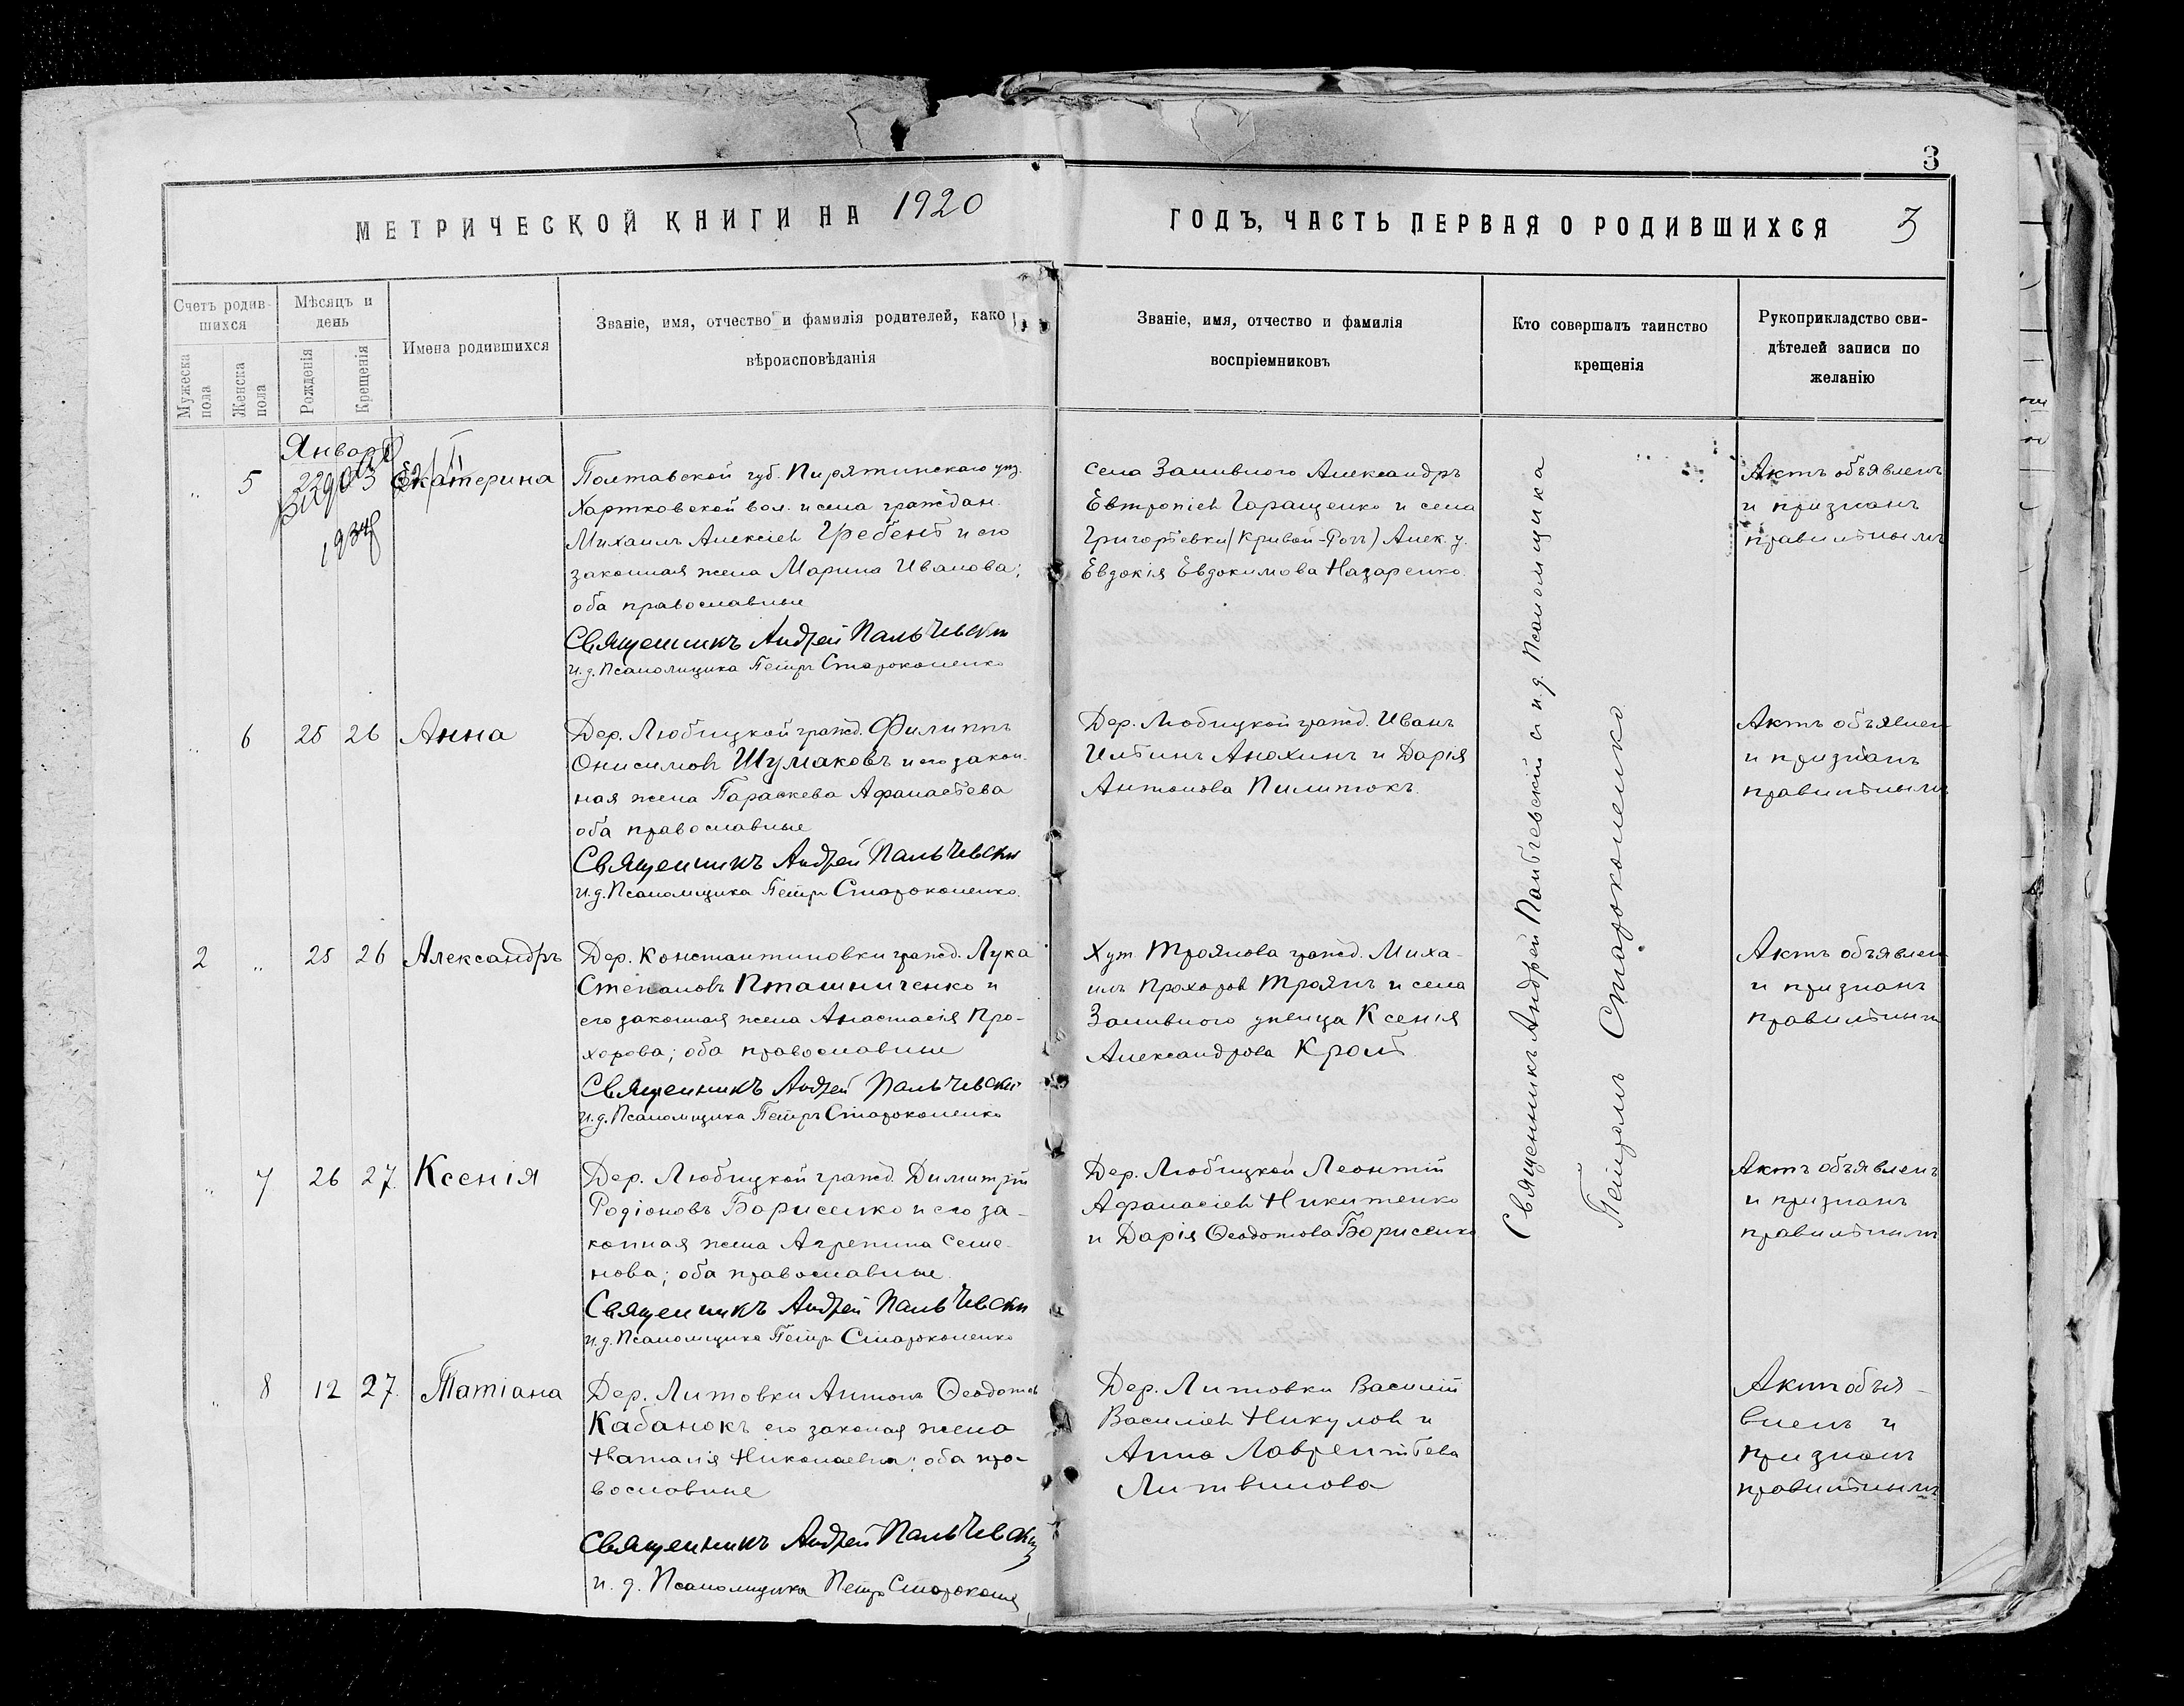 3
МЕТРИЧЕСКОЙ КНИГИ НА 1920
ГОДЪ, ЧАСТЬ ПЕРВАЯ О РОДИВШИХСЯ 3
Счетъ родив-
шихся
Мужеска
пола
Женска
пола
Мѣсяцъ и
день
Рожденія
Крещенія
Имена родившихся
Званіе, имя, отчество и фамилія родителей, како
вѣроисповѣданія
Званіе, имя, отчество и фамилія
воспріемниковъ
Кто совершалъ таинство
крещенія
Рукоприкладство сви-
дѣтелей записи по
желанію
Январь
„ 5 22 Екатерина
Полтавской губ. Пирятинскаго уѣз.
Хартковской вол. и села граждан.
Михаилъ Алексіев Гребень и его
законная жена Марина Иванова;
оба православные
Священникъ Андрей Пальчевскій
и.д. Псаломщика Петръ Староконенко
села Заливного Александръ
Евтропіев Гаращенко и села
Григорьевки (Кривой-Рогъ) Алек. у.
Евдокія Евдокимова Назаренко.
Актъ объявленъ
и признанъ
правильнымъ
„ 6 25 26 Анна
Дер. Любицкой гражд. Филиппъ
Онисимовъ Шумаковъ и его закон-
ная жена Параскева Афанасьева
оба православные
Священникъ Андрей Пальчевскій
и.д. Псаломщика Петръ Староконенко.
Дер. Любицкой гражд. Иванъ
Ильинъ Анохинъ и Дарія
Антонова Пилипюкъ.
Актъ объявлен
и признанъ
правильнымъ
2 „ 25 26 Александръ
Дер. Константиновки гражд. Лука
Степановъ Пташниченко и
его законная жена Анастасія Про-
хорова; оба православные
Священникъ Андрей Пальчевскій
и.д. Псаломщика Петръ Староконенко
Хут. Троянова гражд. Миха-
илъ Прохоров Троянъ и села
Заливного дѣвица Ксенія
Александрова Кроль.
Актъ объявлен
и признанъ
правильнымъ
„ 7 26 27. Ксенія
Дер. Любицкой гражд. Димитрій
Родіоновъ Борисенко и его за-
конная жена Агрепина Семе-
нова; оба православные.
Священникъ Андрей Пальчевскій
и.д. Псаломщика Петръ Староконенко
Дер. Любицкой Леонтій
Афанасіев Никитенко
и Дарія Ѳеодотова Борисенко
Актъ объявленъ
и признанъ
правильнымъ
„ 8 12 27. Татіана
Дер. Литовки Антонъ Ѳеодотов
Кабанокъ его законая жена
Наталія Николаевна; оба пра-
вославные
Священникъ Андрей Пальчевскій
и. д. Псаломщика Петръ Староконен
Дер. Литовки Василій
Василіев Никулов и
Анна Лаврентьева
Литвинова
Актъ объя-
вленъ и
признанъ
правильнымъ
Священникъ Андрей Пальчевскій съ и.д. Псаломщика
Петромъ Староконенко